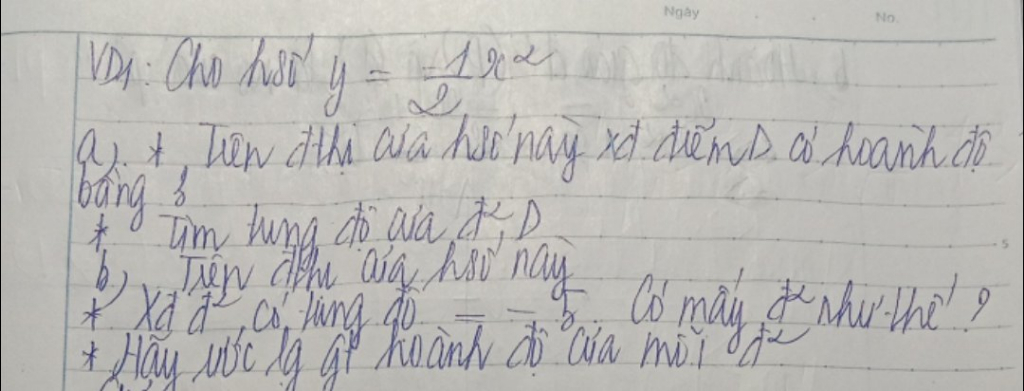 Ngày No.
VD1: Cho hsố y = -1/2 x²
a). * Trên đthị của hsố này xđ điểm D. có hoành độ
bằng 3
* Tìm tung độ của đ², D
b) Trên đthị của hsố này
* Xđ đ² có tung độ = -5. Có mấy đ² như thế?
* Hãy ước lg gt hoành độ của mỗi đ²